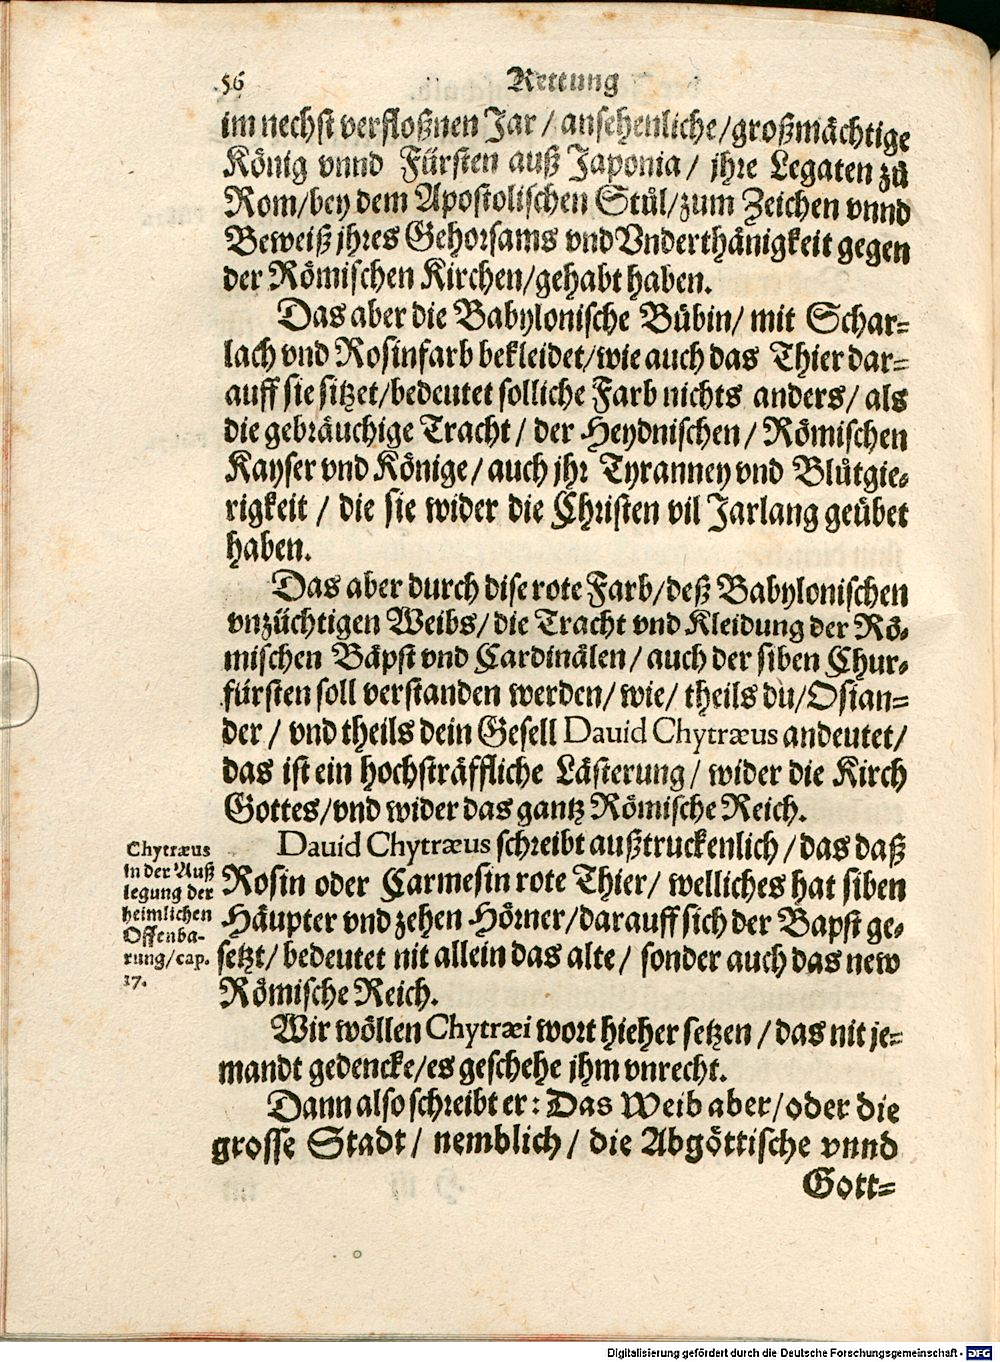 56 Rettung
im nechst verfloßnen Jar / ansehenliche/großmächtige
König vnnd Fürsten auß Japonia / jhre Legaten zů
Rom/bey dem Apostolischen Stůl/zum Zeichen vnnd
Beweiß jhres Gehorsams vnd Vnderthänigkeit gegen
der Römischen Kirchen/gehabt haben.
Das aber die Babylonische Bůbin/ mit Schar=
lach vnd Rosinfarb bekleidet/wie auch das Thier dar=
auff sie sitzet/bedeutet solliche Farb nichts anders/ als
die gebräuchige Tracht / der Heydnischen / Römischen
Kayser vnd Könige / auch jhr Tyranney vnd Blůtgie=
rigkeit / die sie wider die Christen vil Jarlang geübet
haben.
Das aber durch dise rote Farb/deß Babylonischen
vnzüchtigen Weibs/ die Tracht vnd Kleidung der Rö=
mischen Bäpst vnd Cardinälen / auch der siben Chur=
fürsten soll verstanden werden/ wie/ theils du/Osian=
der / vnd theils dein Gesell Dauid Chytræus andeutet/
das ist ein hochsträffliche Lästerung / wider die Kirch
Gottes/vnd wider das gantz Römische Reich.
Dauid Chytræus schreibt außtruckenlich / das daß
Rosin oder Carmesin rote Thier/ welliches hat siben
Häupter vnd zehen Hörner/darauff sich der Bapst ge=
setzt/ bedeutet nit allein das alte / sonder auch das new
Römische Reich.
Chytræus
in der Auß
legung der
heimlichen
Offenba-
rung/cap.
17.
Wir wöllen Chytræi wort hieher setzen / das nit je=
mandt gedencke/es geschehe jhm vnrecht.
Dann also schreibt er: Das Weib aber/oder die
grosse Stadt / nemblich / die Abgöttische vnnd
Gott=
Digitalisierung gefördert durch die Deutsche Forschungsgemeinschaft - DFG